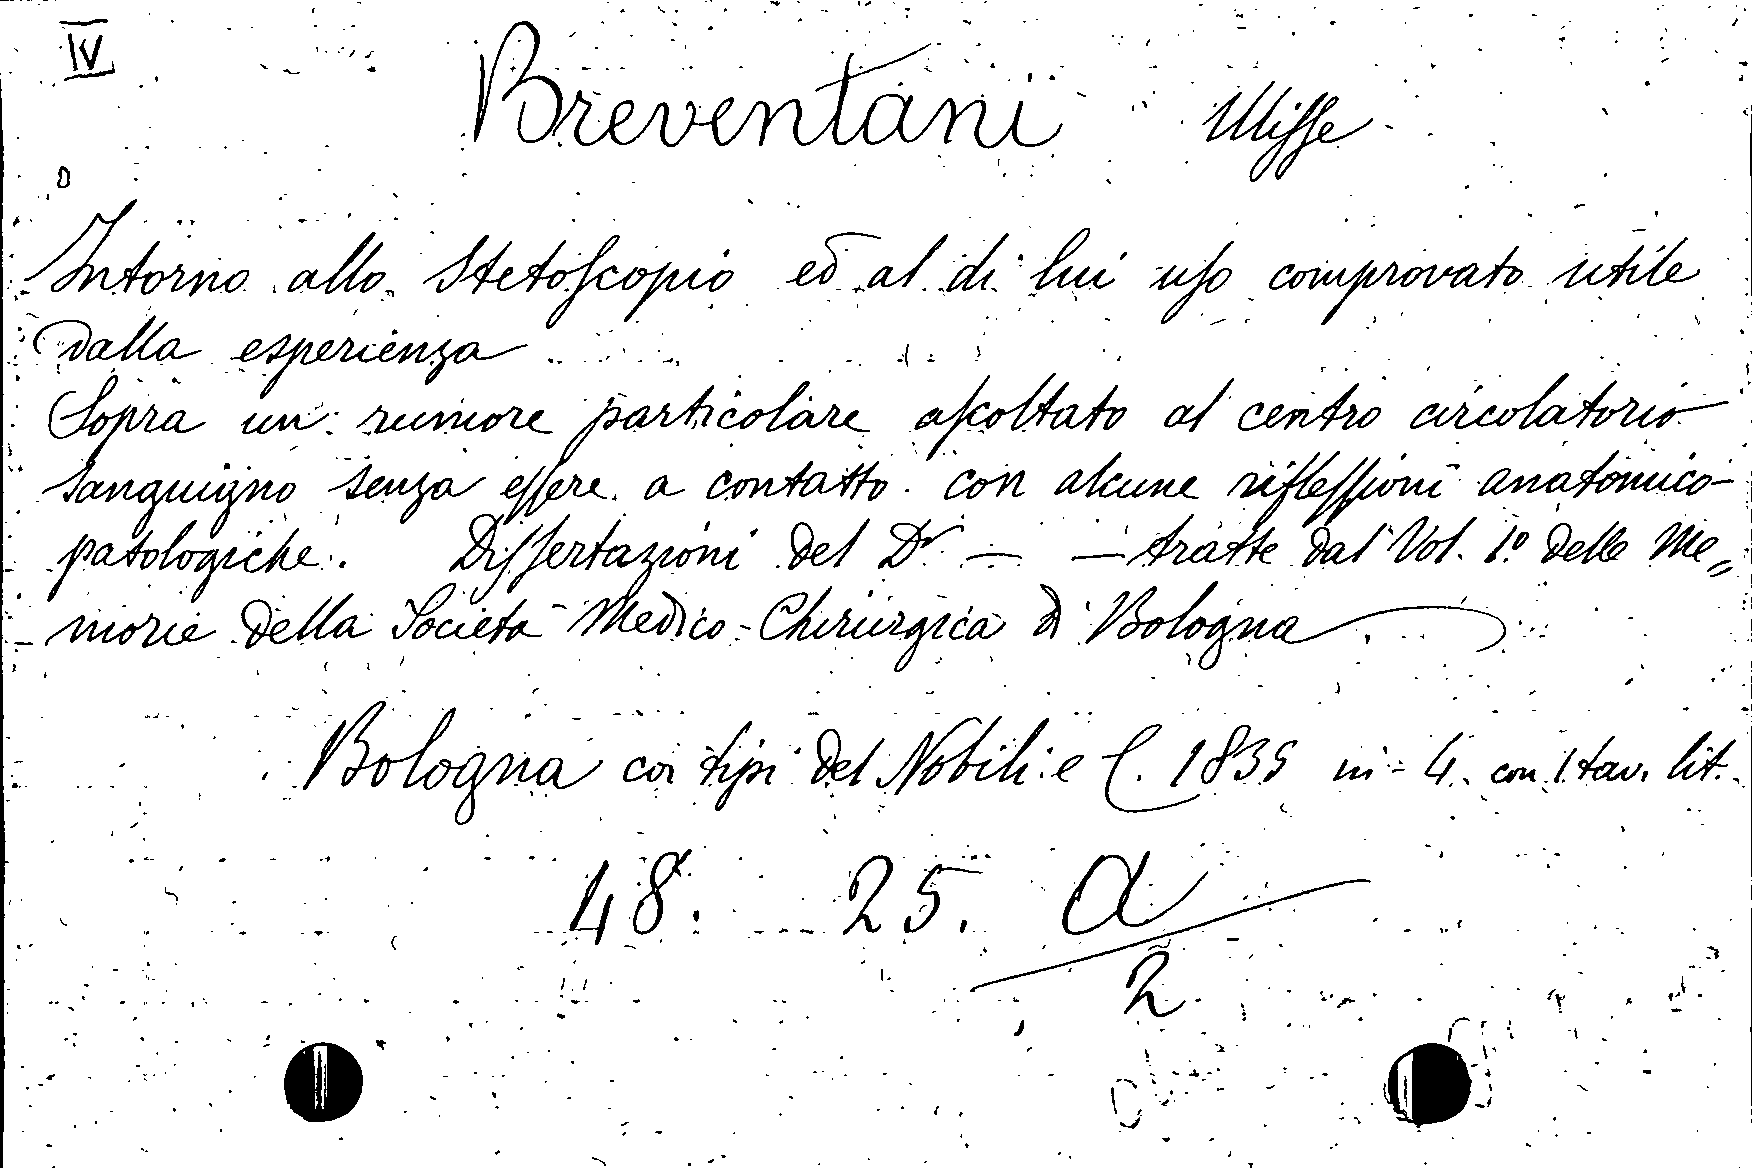 IV
Breventani Ulisse
Intorno allo Stetoscopio ed al di lui uso comprovato utile
dalla esperienza
Sopra un rumore particolare ascoltato al centro circolatorio
sanguigno senza essere a contatto con alcune riflessioni anatomico-
patologiche. Dissertazioni del Dr — — tratte dal Vol. 1º delle Me„
morie della Società Medico-Chirurgica di Bologna
Bologna coi tipi del Nobili e C. 1835 in-4. con 1 tav. lit.
48. 25. a
2